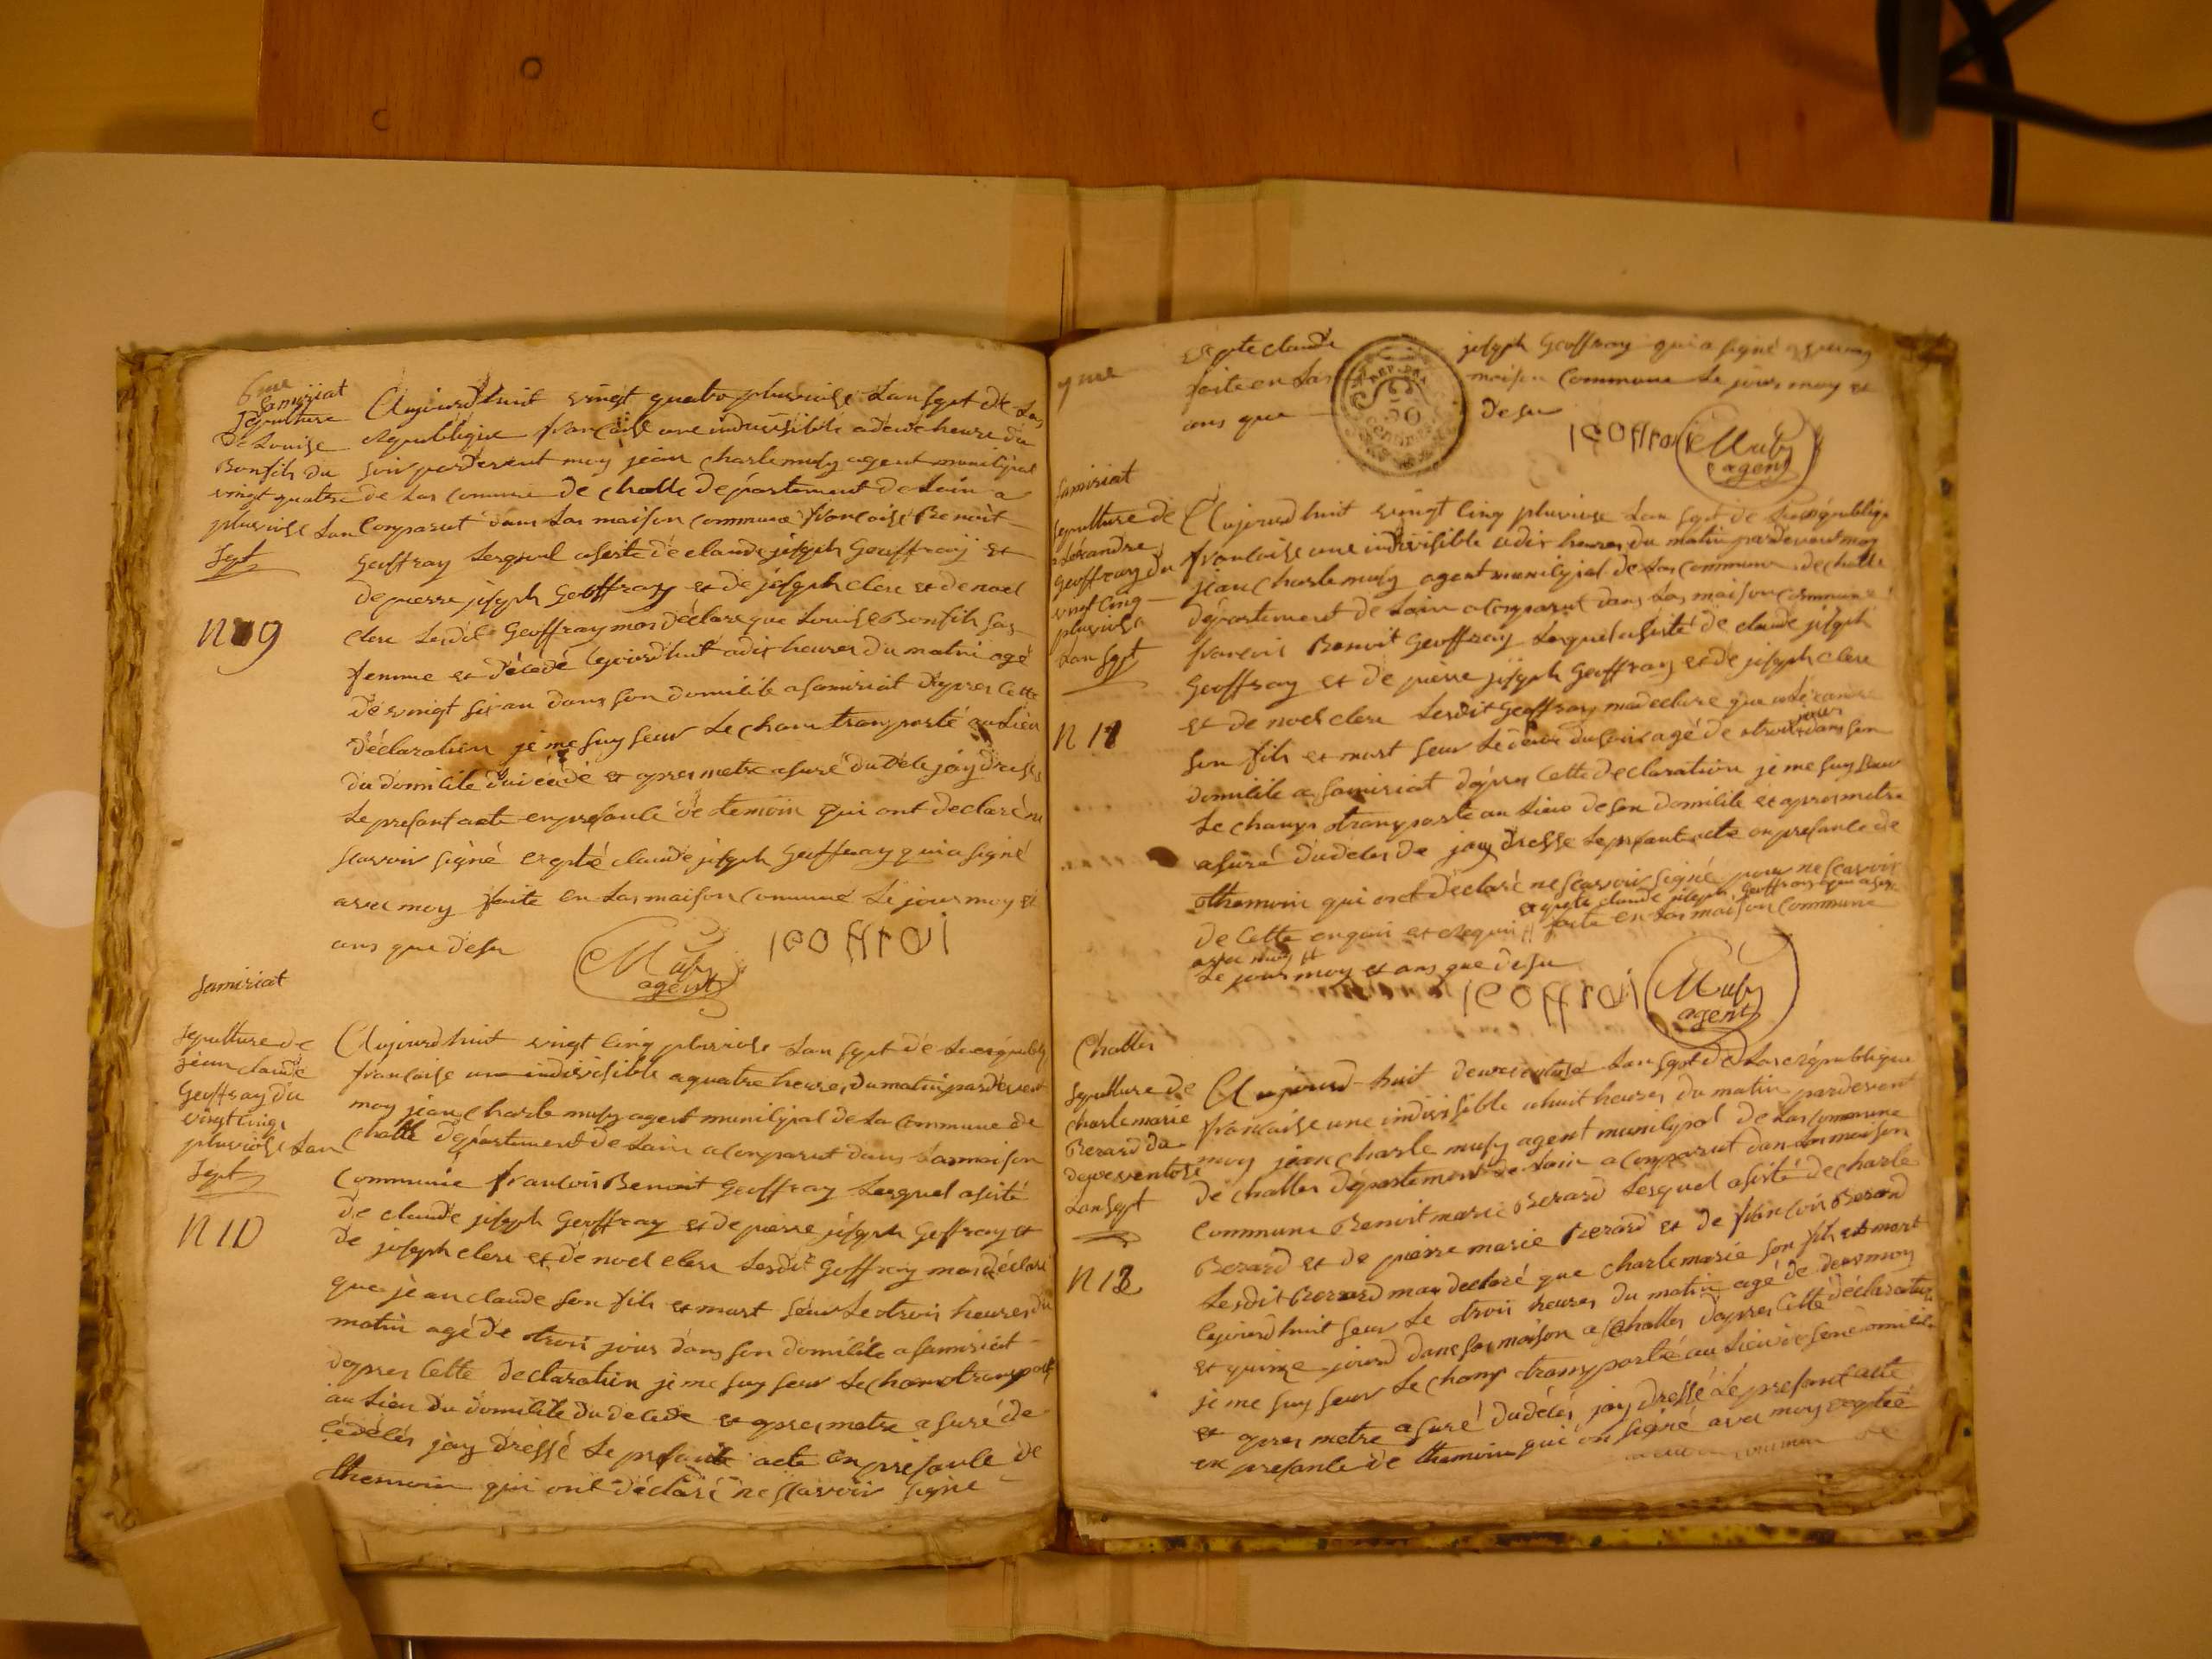 6me
Samiriat
Sepulture
de Louise
Bonfils du
vingt quatre
pluviose Lan
Sept
N 9
Aujourdhuit vingt quatre pluviose Lan sept de Las
republique francaise une indivisible a deux heure du
soir pardevent moy jean charle musy agent municipal
de Las comune de challe departement de Lain a
comparut dans Las maison commune francoise Benoit
Geoffray Lesquel asisté de claude joseph Geoffray et
de pierre joseph Geoffray et de joseph clere et de noel
clere Lesdit Geoffray mas déclare que Louise Bonfils sas
femme et décédé cejourdhut a dix heures du matin agé
de vingt six an dans son domicile a samiriat dapres cette
déclaration je me suy seur Le cham transporté au Lieu
du domicile du décédé et apres metre asuré du dele jay dressé
Le presant acte en presance de temoin qui ont declaré ne
scavoir signé exepté claude joseph Geoffray qui a signé
avec moy faite en Las maison comune Le jour moy et
ans que desu
Musy
agent
jeoffroi
Samiriat
Sepulture de
jean claude
Geoffray du
vingt cinq
pluviose Lan
Sept
N 10
Aujourdhuit vingt cinq pluviose Lan sept de Las republiq
francaise une indivisible a quatre heures du matin pardevent
moy jean charle musy agent municipal de La commune de
challe departement de Lain a comparut dans Las maison
commune francois Benoit Geoffray Lesquel asisté
de claude joseph Geoffray et de pierre joseph Geoffray et
de joseph clere et de noel clere Lesdit Geoffray mas déclaré
que jean claude son fils et mort seur Le trois heures du
matin agé de trois jours dans son domicile a samiriat
dapres cette declaration je me suy seur Le cham transporté
au Lieu du domicile du decede et apres metre asuré de
cedeles jay dressé Le presant acte en presance de
themoin qui ont déclaré ne scavoir signé
7me
exepte claude joseph Geoffray qui a signé avec moy
faite en Las maison commune Le jour moy et
ans que desu
REP. FRA.
50
centimes
jeoffroi
Musy
agent
Samiriat
Sepulture de
alexandre
Geoffray du
vint cinq
pluviose
Lan sept
N 11
Aujourdhuit vingt cinq pluviose Lan sept de Las republique
francaise une indivisible a dix heures du matin pardevent moy
jean charle musy agent municipal de Las commune de challe
departement de Lain a comparut dans Las maison commune
francois Benoit Geoffray Lesquel asisté de claude joseph
Geoffray et de pierre joseph Geoffray et de joseph clere
et de noel clere Lesdit Geoffray mas declare que alexandre
son fils et mort seur Le deux du soir agé de trois jour dans son
domicile a samiriat dapres cette declaration je me suy seur
Le champ transporte au Lieu de son domicile et apres metre
asuré du deles de jay dresse Le presant acte en presance de
themoin qui ont déclaré ne scavoir signé pour ne scavoir
exepte claude joseph Geoffray qui a signe
de cette enquis et requis faite en Las maison commune
avec moy
Le jour moy et ans que desu
jeoffroi
Musy
agent
Challes
Sepulture de
charle marie
Berard du
deux ventose
Lan sept
N 12
Aujourd huit deux ventose Lan sept de Las republique
francaise une indivisible a huit heures du matin pardevent
moy jean charle musy agent municipal de Las commune
de challes departement de Lain a comparut dans Las maison
commune Benoit marie Berard Lesquel asisté de charle
Berard et de pierre marie Berard et de francois Berard
Lesdit Berard mas declaré que charle marie son fils et mort
cejourdhuit seur Le trois heures du matin agé de deux moy
et quinze jourd dans sas maison a challes dapres cette déclaration
je me suy seur Le champ transporté au Lieu de son domicile
et apres metre asuré du déles jay dressé Le presant acte
en presance de themoin qui on signé avec moy exepté